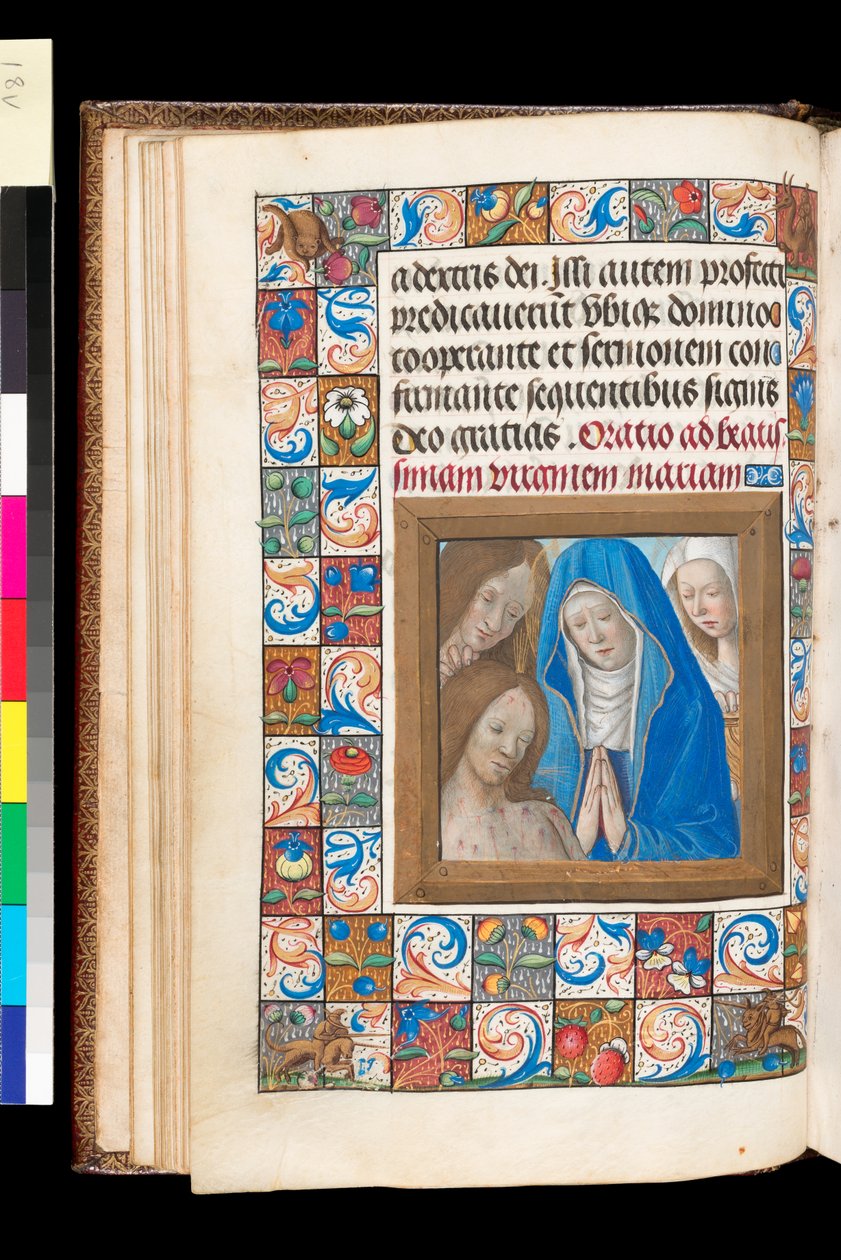 18v
a dextris dei. Issi autem profecti
predicauerūt vbiqꝫ domino
cooperante et sermonem con
firmante sequentibus signis
Deo gratias. Oratio ad beatis
simam virginem mariam